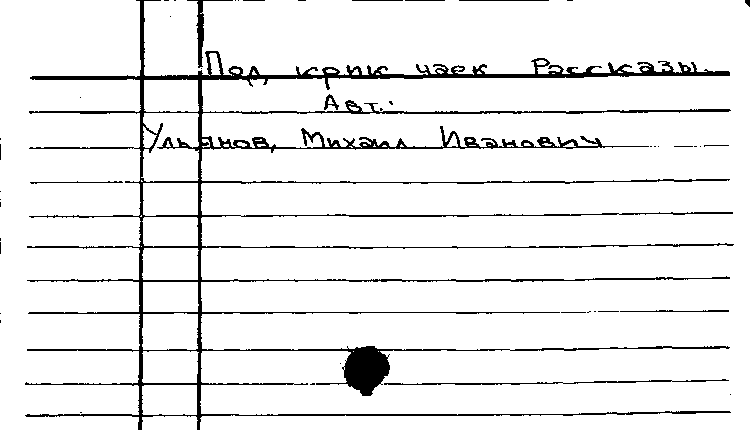 Под крик чаек Рассказы.
Авт.:
Ульянов, Михаил Иванович